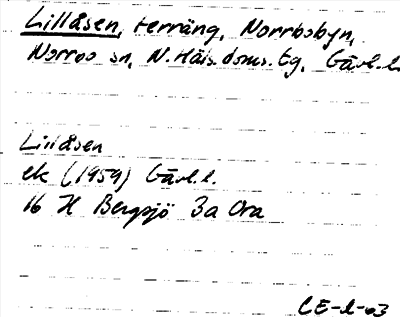 Lillåsen, terräng, Norrbobyn,
Norrbo sn, N. Häls. doms. tg, Gävl. l.
Lillåsen
ek (1959) Gävl. l.
16 H Bergsjö 3a Ora
CE-l-63